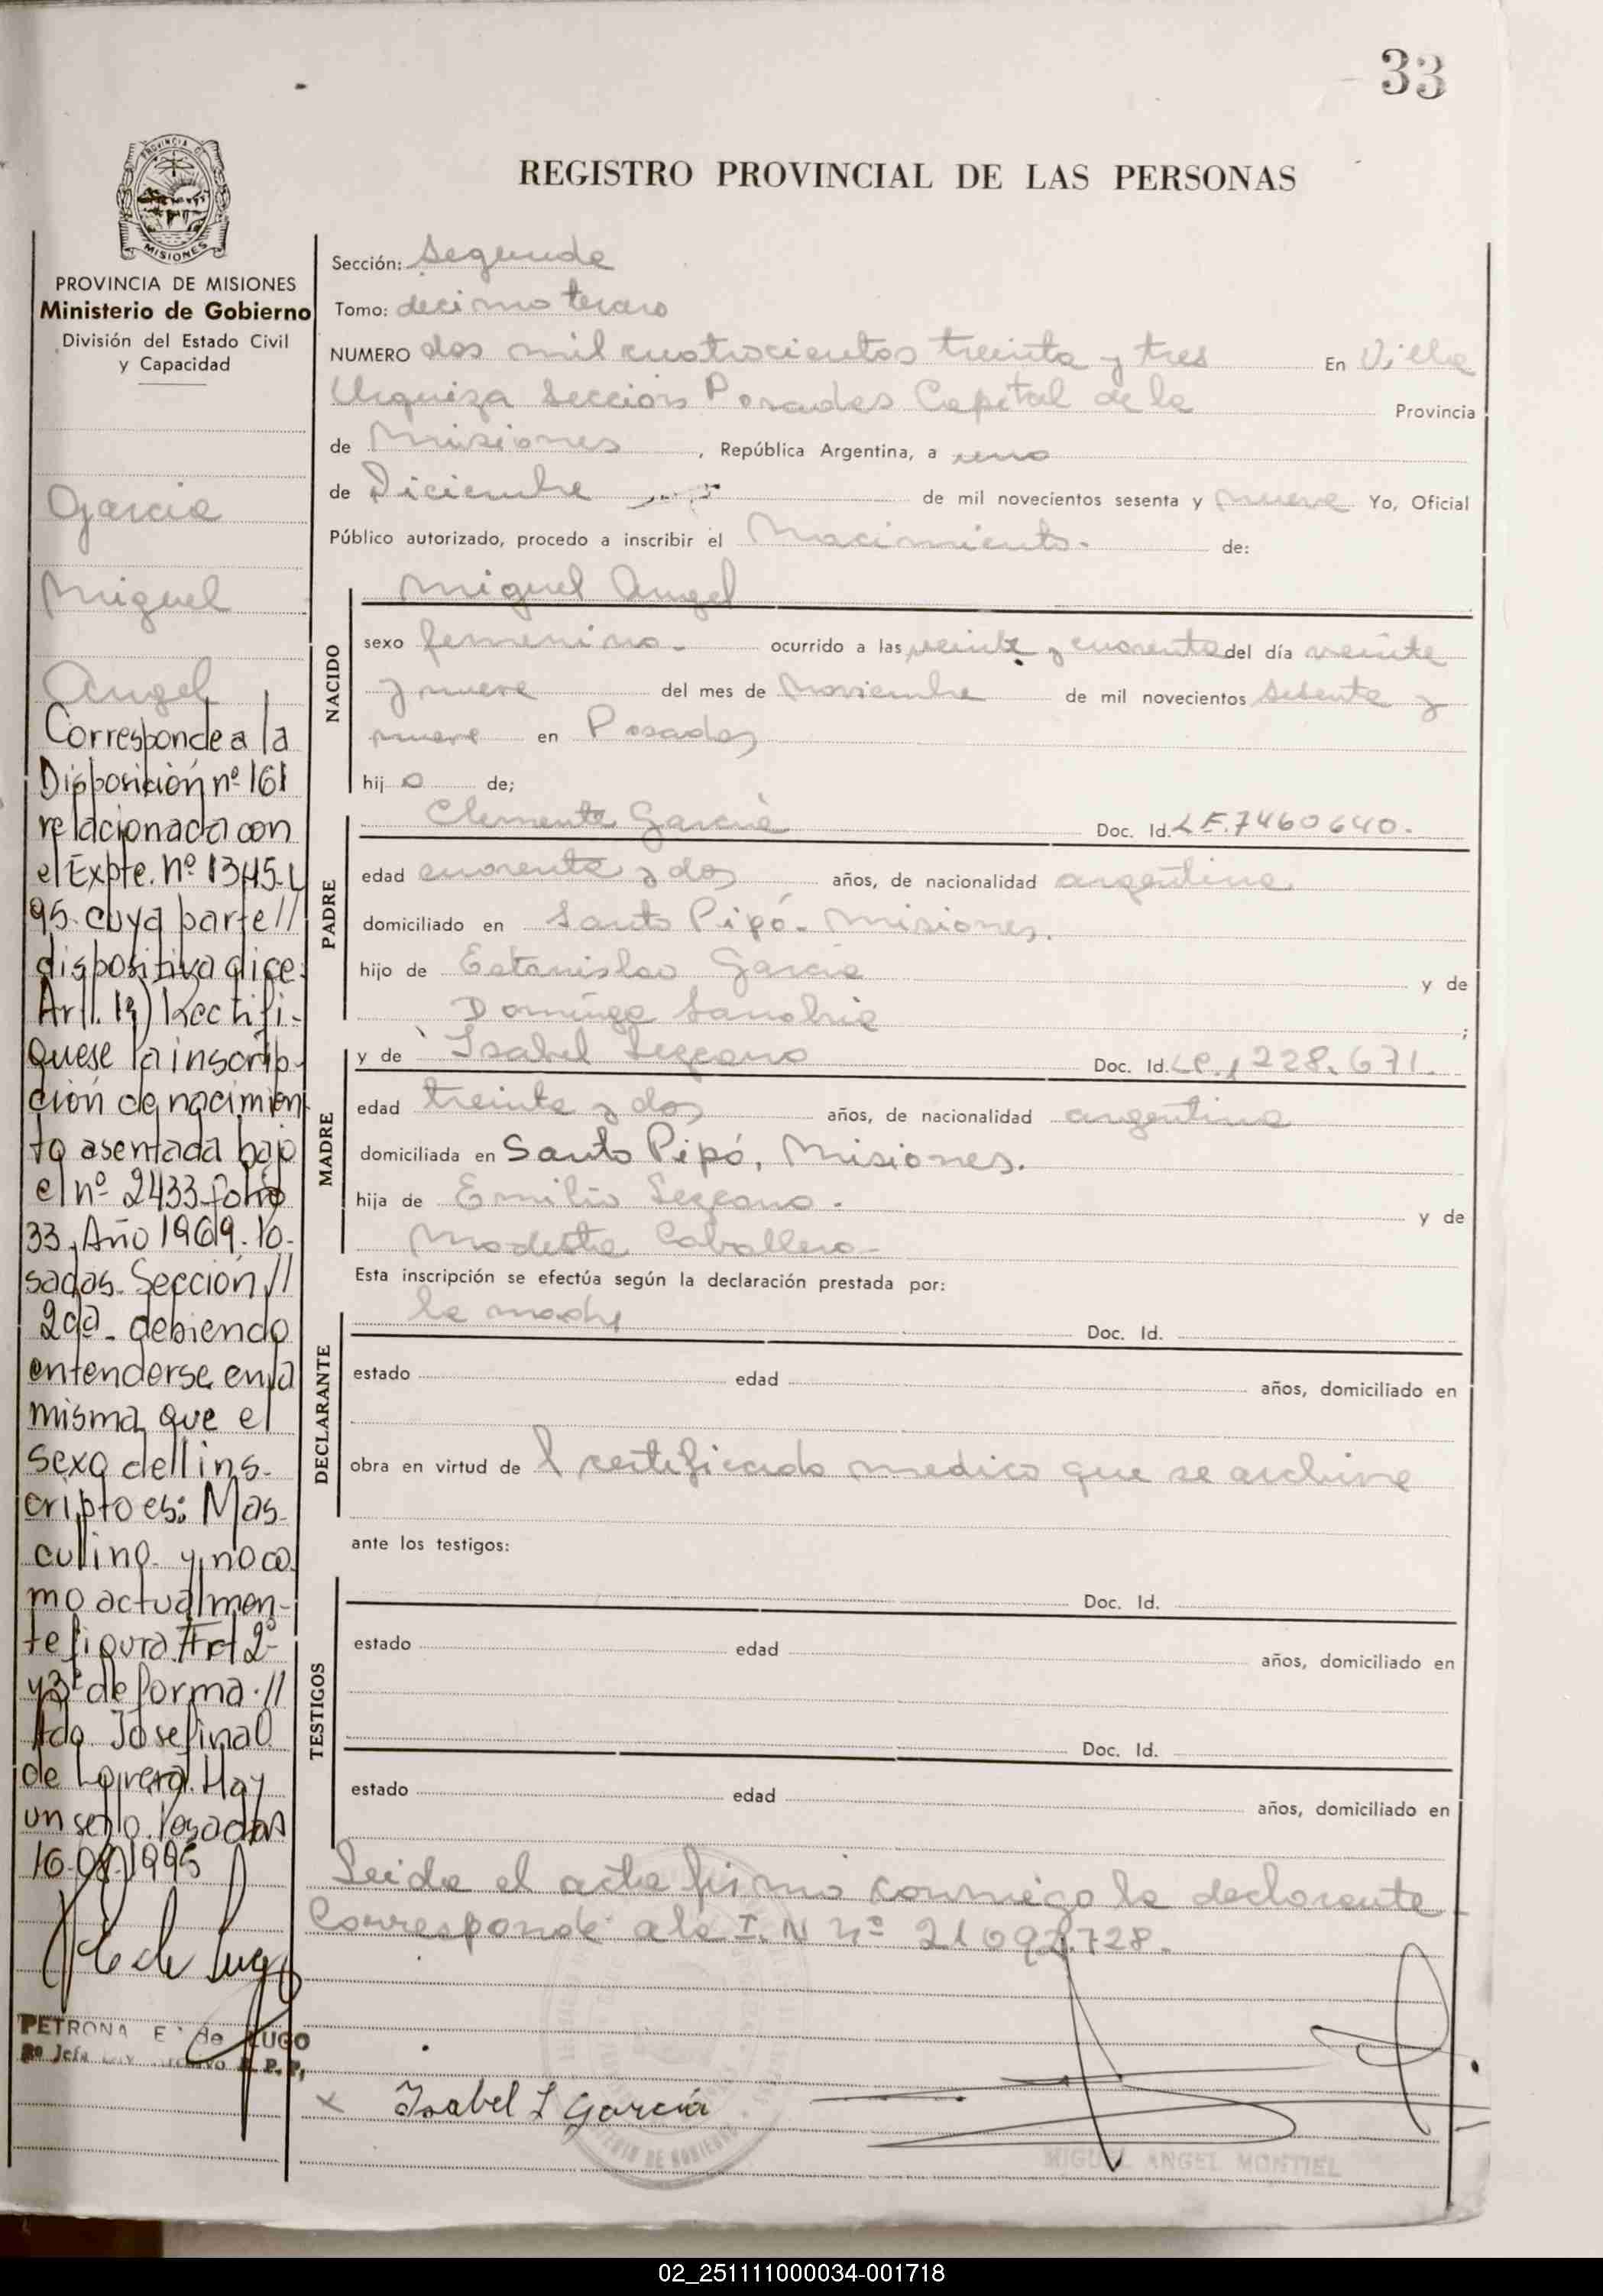 33
REGISTRO PROVINCIAL DE LAS PERSONAS
PROVINCIA DE
MISIONES
PROVINCIA DE MISIONES
Ministerio de Gobierno
División del Estado Civil
y Capacidad
Garcia
Miguel
Angel
Corresponde a la
Disposición nº 161
relacionada con
el Expte. nº 1345-L
95. cuya parte //
dispositiva dice:
Art. 1º) Rectifí-
quese la inscrip-
ción de nacimien
to asentada bajo
el nº 2433 folio
33, Año 1969. Po-
sadas. Sección //
2da - debiendo
entenderse en la
misma que el
sexo del ins-
cripto es: Mas-
culino y no co
mo actualmen-
te figura. Art 2º
y 3º de forma. //
fdo. Josefina
de Hay
un sello. Posadas
1995
PETRONA E. de LUGO
Sección: Segunda
Tomo: decimo tercero
NUMERO dos mil cuatrocientos treinta y tres En Villa
Urquiza Sección Posadas Capital de la Provincia
de Misiones , República Argentina, a uno
de Diciembre de mil novecientos sesenta y nueve Yo, Oficial
Público autorizado, procedo a inscribir el Nacimiento. de:
NACIDO
Miguel Angel
sexo femenino. ocurrido a las veinte y cuarenta del día veinte
y nueve del mes de Noviembre de mil novecientos sesenta y
nueve en Posadas
hij o de;
PADRE
Clemente García Doc. Id. LE.7460640.
edad cuarenta y dos años, de nacionalidad argentina
domiciliado en Santo Pipó. Misiones.
hijo de Estanislao Garcia y de
Dominga Sanabria ;
MADRE
y de Isabel Lezcano Doc. Id. LC.1228.671.
edad treinta y dos años, de nacionalidad argentina
domiciliada en Santo Pipó, Misiones.
hija de Emilio Lezcano. y de
Modesta Caballero
Esta inscripción se efectúa según la declaración prestada por:
DECLARANTE
la madre Doc. Id.
estado edad años, domiciliado en
obra en virtud de l certificado medico que se archiva
ante los testigos:
TESTIGOS
Doc. Id.
estado edad años, domiciliado en
Doc. Id.
estado edad años, domiciliado en
Leida el acta firmó conmigo la declarante
Corresponde a la I. N nº 21.692.728.
x Isabel L García
MIGUEL ANGEL MONTIEL
02_251111000034-001718